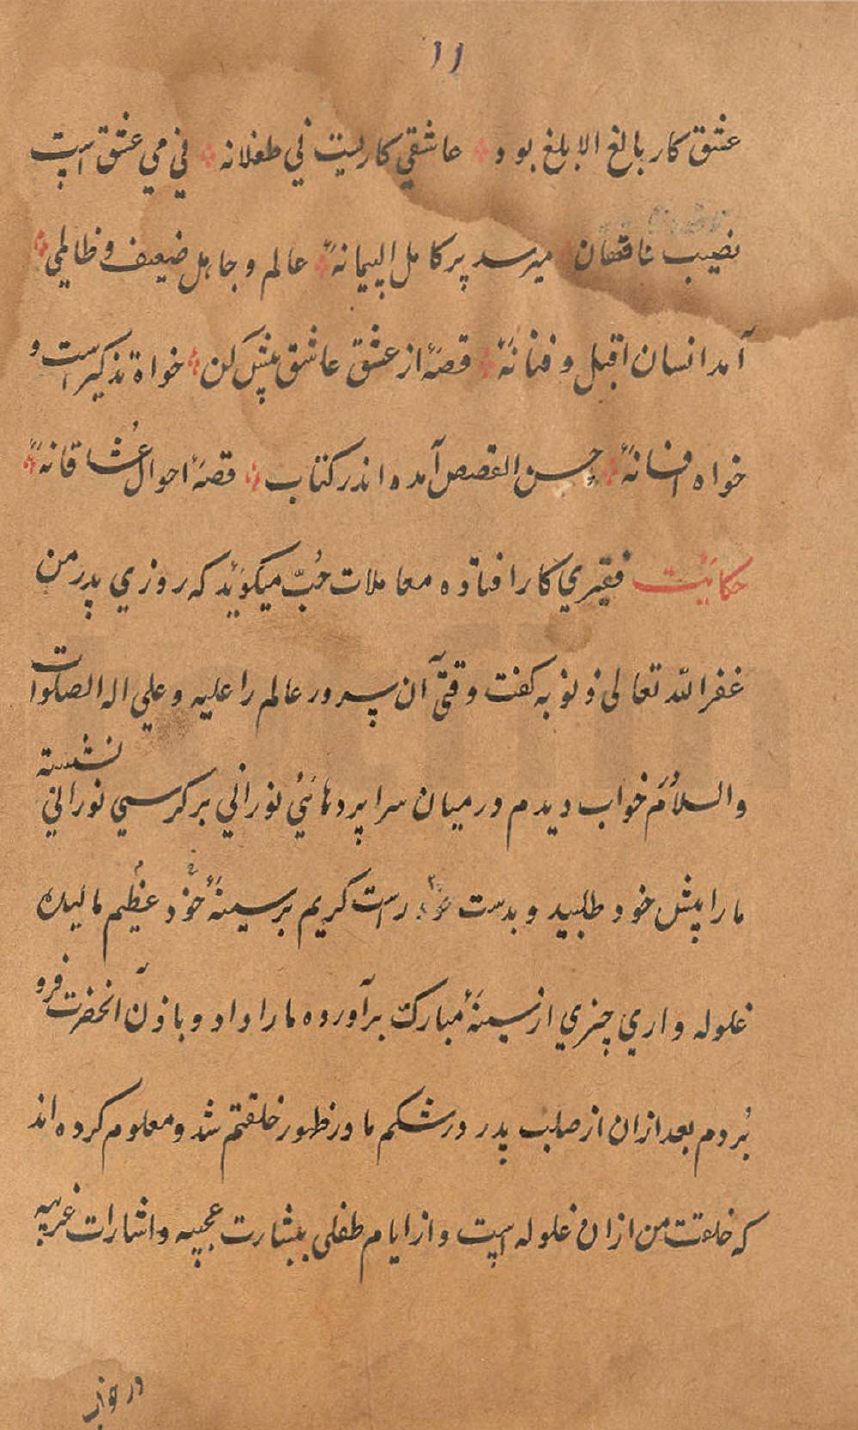 ۱۱
عشق کار بالغ الابلغ بود * عاشقي کاریست ني طفلانه * ني مي عشق است
نصیب ناقصان * میرسد پر کامل پیمانهٔ * عالم و جاهل ضیعف و ظالمي *
آمد انسان اقبل و فنانهٔ * قصهٔ از عشق عاشق پیش کن * خواة تذکیر است و
خواه افسانهٔ * احسن القصص آمده اندر کتاب * قصهٔ احوال عُشاقانهٔ *
حکایت فقیري کار افتاده معاملات حُبّ میکوید که روزي پدر من
غفر الله تعالی ذنوبه کفت وقتی آن سرور عالم را علیه و علي اله الصلوات
والسلام خواب دیدم در میان سرا پردهائي نوراني بر کرسي نوراني نشسته
ما را پیش خود طلبید و بدست خود راست کریم بر سینهٔ خود عظیم مالیده
غلوله واري چیزي از سینهٔ مبارک برآورده ما را داد و باذن آنحضرت فرو
بُردم بعد ازان از صلب پدر در شکم مادر ظهور خلقتم شد و معلوم کرده اند
که خلقت من ازان غلوله است و از ایام طفلی ببشارت عجیبه و اشارات غریبه